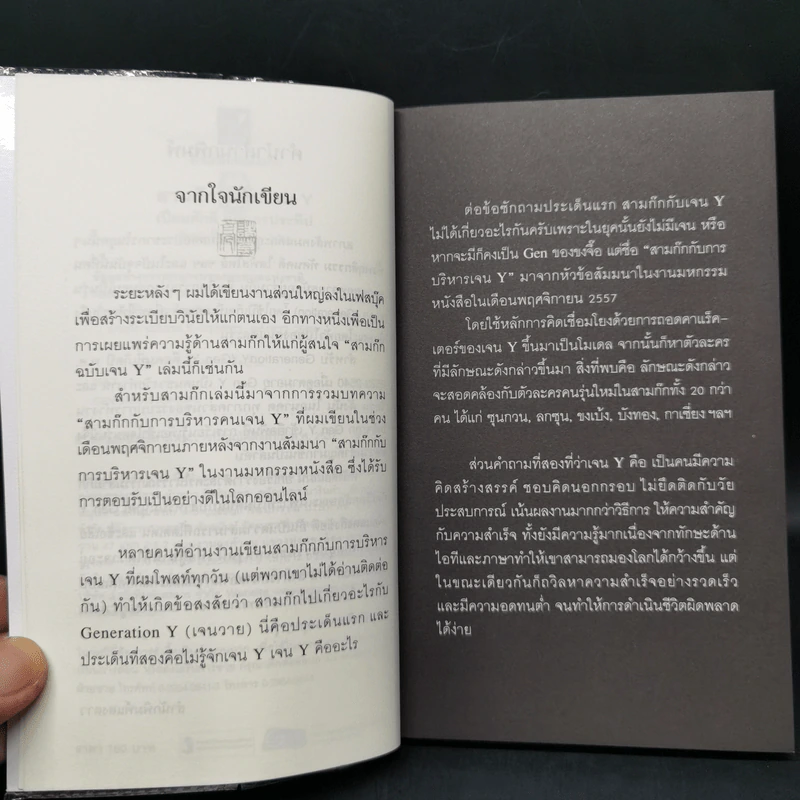 จากใจนักเขียน
ระยะหลังๆ ผมได้เขียนงานส่วนใหญ่ลงในเฟสบุ๊ค
เพื่อสร้างระเบียบวินัยให้แก่ตนเอง อีกทางหนึ่งเพื่อเป็น
การเผยแพร่ความรู้ด้านสามก๊กให้แก่ผู้สนใจ “สามก๊ก
ฉบับเจน Y” เล่มนี้ก็เช่นกัน
สำหรับสามก๊กเล่มนี้มาจากการรวมบทความ
“สามก๊กกับการบริหารคนเจน Y” ที่ผมเขียนในช่วง
เดือนพฤศจิกายนภายหลังจากงานสัมมนา “สามก๊กกับ
การบริหารเจน Y” ในงานมหกรรมหนังสือ ซึ่งได้รับ
การตอบรับเป็นอย่างดีในโลกออนไลน์
หลายคนที่อ่านงานเขียนสามก๊กกับการบริหาร
เจน Y ที่ผมโพสท์ทุกวัน (แต่พวกเขาไม่ได้อ่านติดต่อ
กัน) ทำให้เกิดข้อสงสัยว่า สามก๊กไปเกี่ยวอะไรกับ
Generation Y (เจนวาย) นี่คือประเด็นแรก และ
ประเด็นที่สองคือไม่รู้จักเจน Y เจน Y คืออะไร
ต่อข้อซักถามประเด็นแรก สามก๊กกับเจน Y
ไม่ได้เกี่ยวอะไรกันครับเพราะในยุคนั้นยังไม่มีเจน หรือ
หากจะมีก็คงเป็น Gen ของขงจื๊อ แต่ชื่อ “สามก๊กกับการ
บริหารเจน Y” มาจากหัวข้อสัมมนาในงานมหกรรม
หนังสือในเดือนพฤศจิกายน 2557
โดยใช้หลักการคิดเชื่อมโยงด้วยการถอดคาแร็ค-
เตอร์ของเจน Y ขึ้นมาเป็นโมเดล จากนั้นก็หาตัวละคร
ที่มีลักษณะดังกล่าวขึ้นมา สิ่งที่พบคือ ลักษณะดังกล่าว
จะสอดคล้องกับตัวละครคนรุ่นใหม่ในสามก๊กทั้ง 20 กว่า
คน ได้แก่ ซุนกวน, ลกซุน, ขงเบ้ง, บังทอง, กาเซี่ยง ฯลฯ
ส่วนคำถามที่สองที่ว่าเจน Y คือ เป็นคนมีความ
คิดสร้างสรรค์ ชอบคิดนอกกรอบ ไม่ยึดติดกับวัย
ประสบการณ์ เน้นผลงานมากกว่าวิธีการ ให้ความสำคัญ
กับความสำเร็จ ทั้งยังมีความรู้มากเนื่องจากทักษะด้าน
ไอทีและภาษาทำให้เขาสามารถมองโลกได้กว้างขึ้น แต่
ในขณะเดียวกันก็ถวิลหาความสำเร็จอย่างรวดเร็ว
และมีความอดทนต่ำ จนทำให้การดำเนินชีวิตผิดพลาด
ได้ง่าย